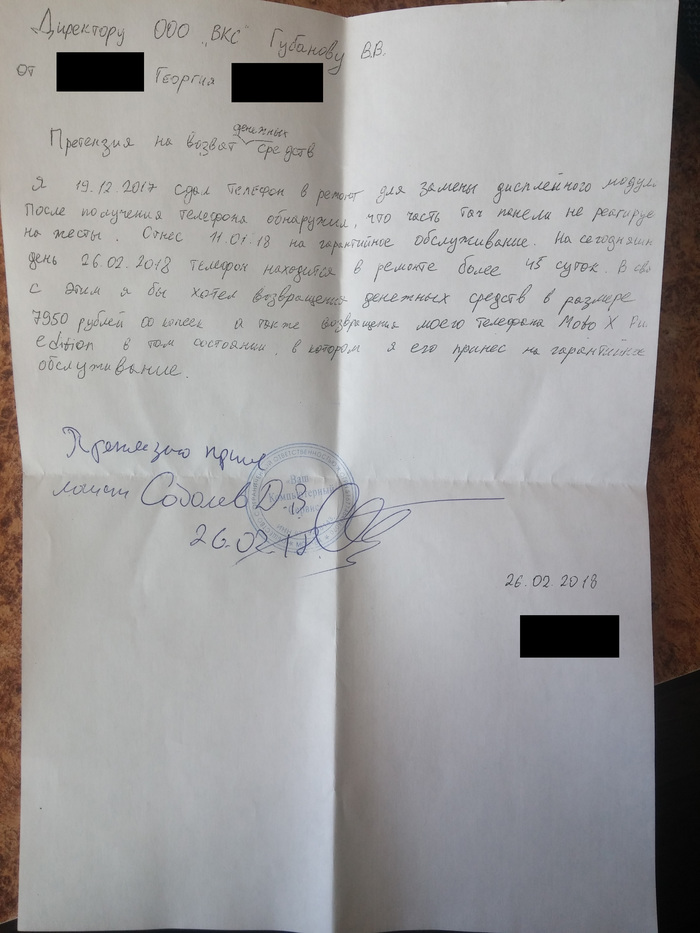 Директору ООО „ВКС" Губанову В.В.
от Георгия
Претензия на возврат денежных средств
Я 19.12.2017 сдал телефон в ремонт для замены дисплейного модуля
После получения телефона обнаружил, что часть тач панели не реагируе
на жесты. Отнес 11.01.18 на гарантийное обслуживание. На сегодняшн
день 26.02.2018 телефон находится в ремонте более 45 суток. В свя
с этим я бы хотел возвращения денежных средств в размере
7950 рублей 00 копеек а также возвращения моего телефона Moto X Pu
edition в том состоянии, в котором я его принес на гарантийное
обслуживание.
Претензию принял
Соболев Д.З
26.02.18
«Ваш
Компьютерный
Сервис»
26.02.2018